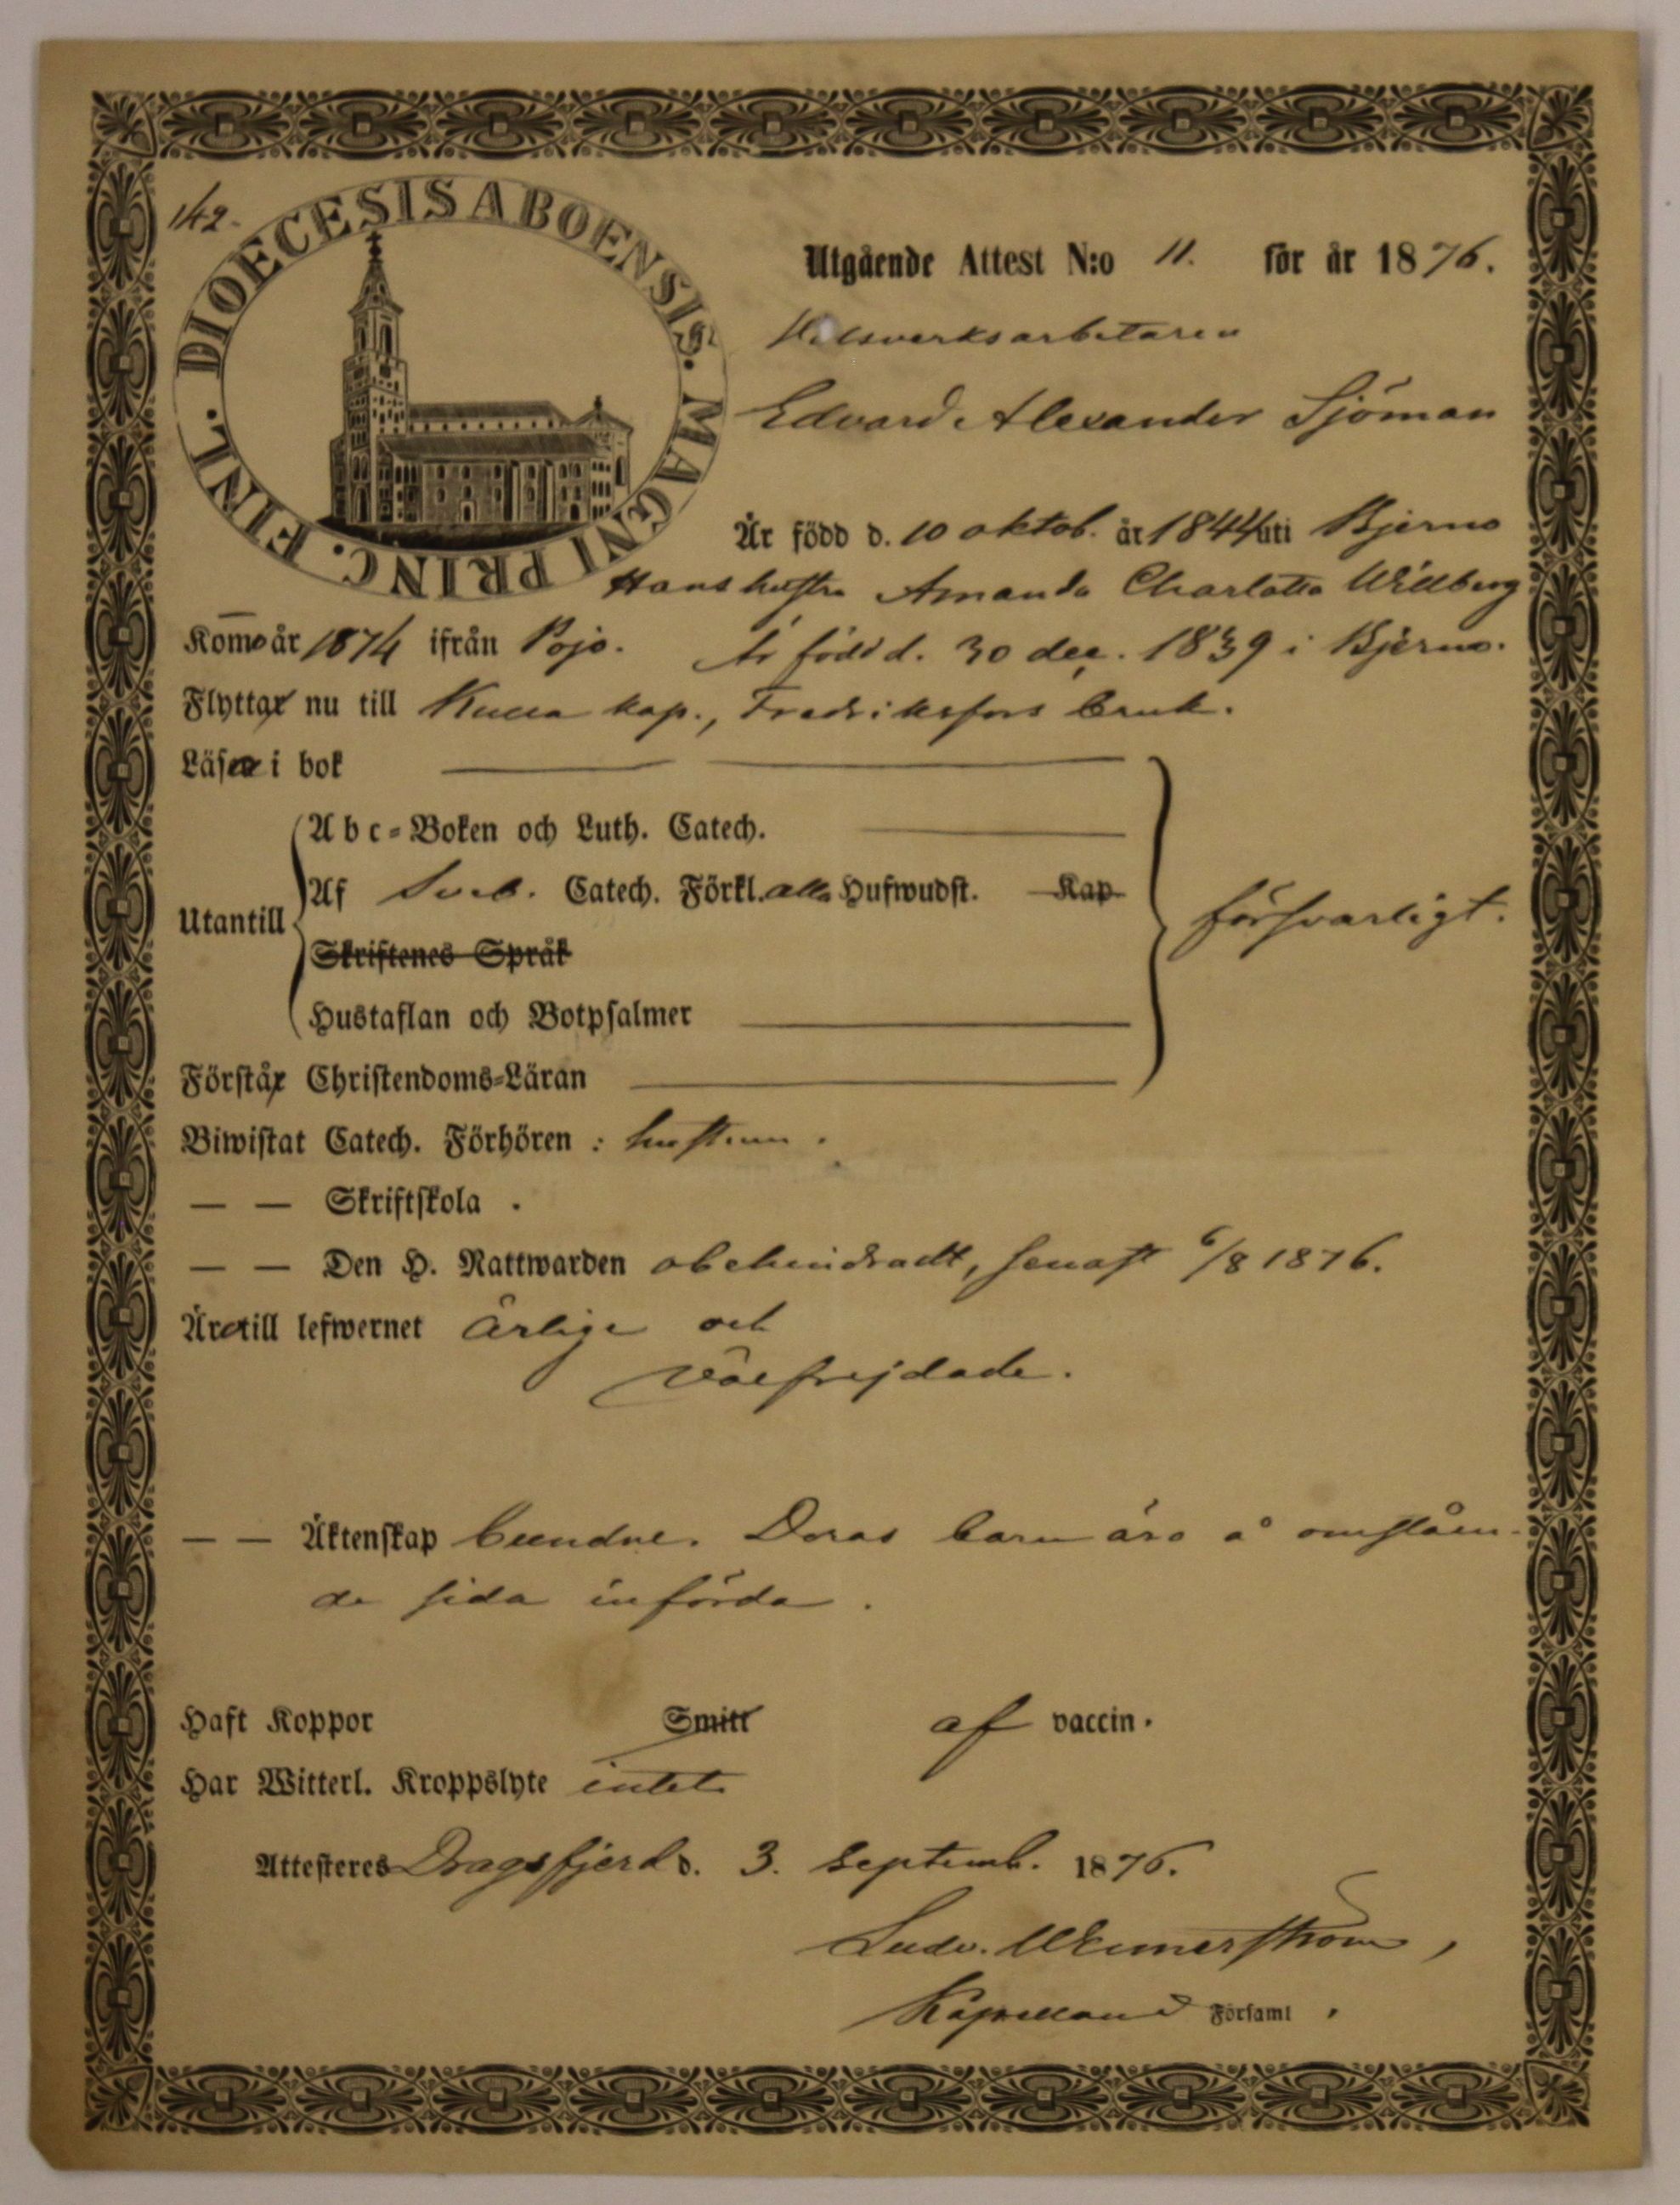 142.
DIOECESIS ABOENSIS. MAGNI PRINC. FINL.
Utgående Attest N:o 11. för år 1876.
Valsverksarbetaren
Edvard Alexander Sjöman
Är född d. 10 oktob. år 1844 uti Bjerno
Hans hustru Amanda Charlotta Willberg
Komo år 1874 ifrån Pojo. Är född d. 30 dec. 1839 i Bjerno.
Flyttar nu till kap., Fredriksfors bruk.
Läsa i bok
Abc-Boken och Luth. Catech.
Utantill Af Sveb. Catech. Förkl. alla Hufwudst. Kap
försvarligt.
Skriftenes Språk
Hustaflan och Botpsalmer
Förstår Christendoms-Läran
Biwistat Catech. Förhören : hustrun.
— — Skriftskola .
— — Den H. Nattwarden obehindradt, senast 6/8 1876.
Äro till lefwernet ärlige och
välfrejdade.
— — Äktenskap bundne. Deras barn äro å omståen-
de sida införda.
Haft Koppor Smitt af vaccin.
Har Witterl. Kroppslyte intet
Attesteres Dragsfjerd d. 3. Septemb. 1876.
Ludv. Wennerström,
Kapellan i Församl.